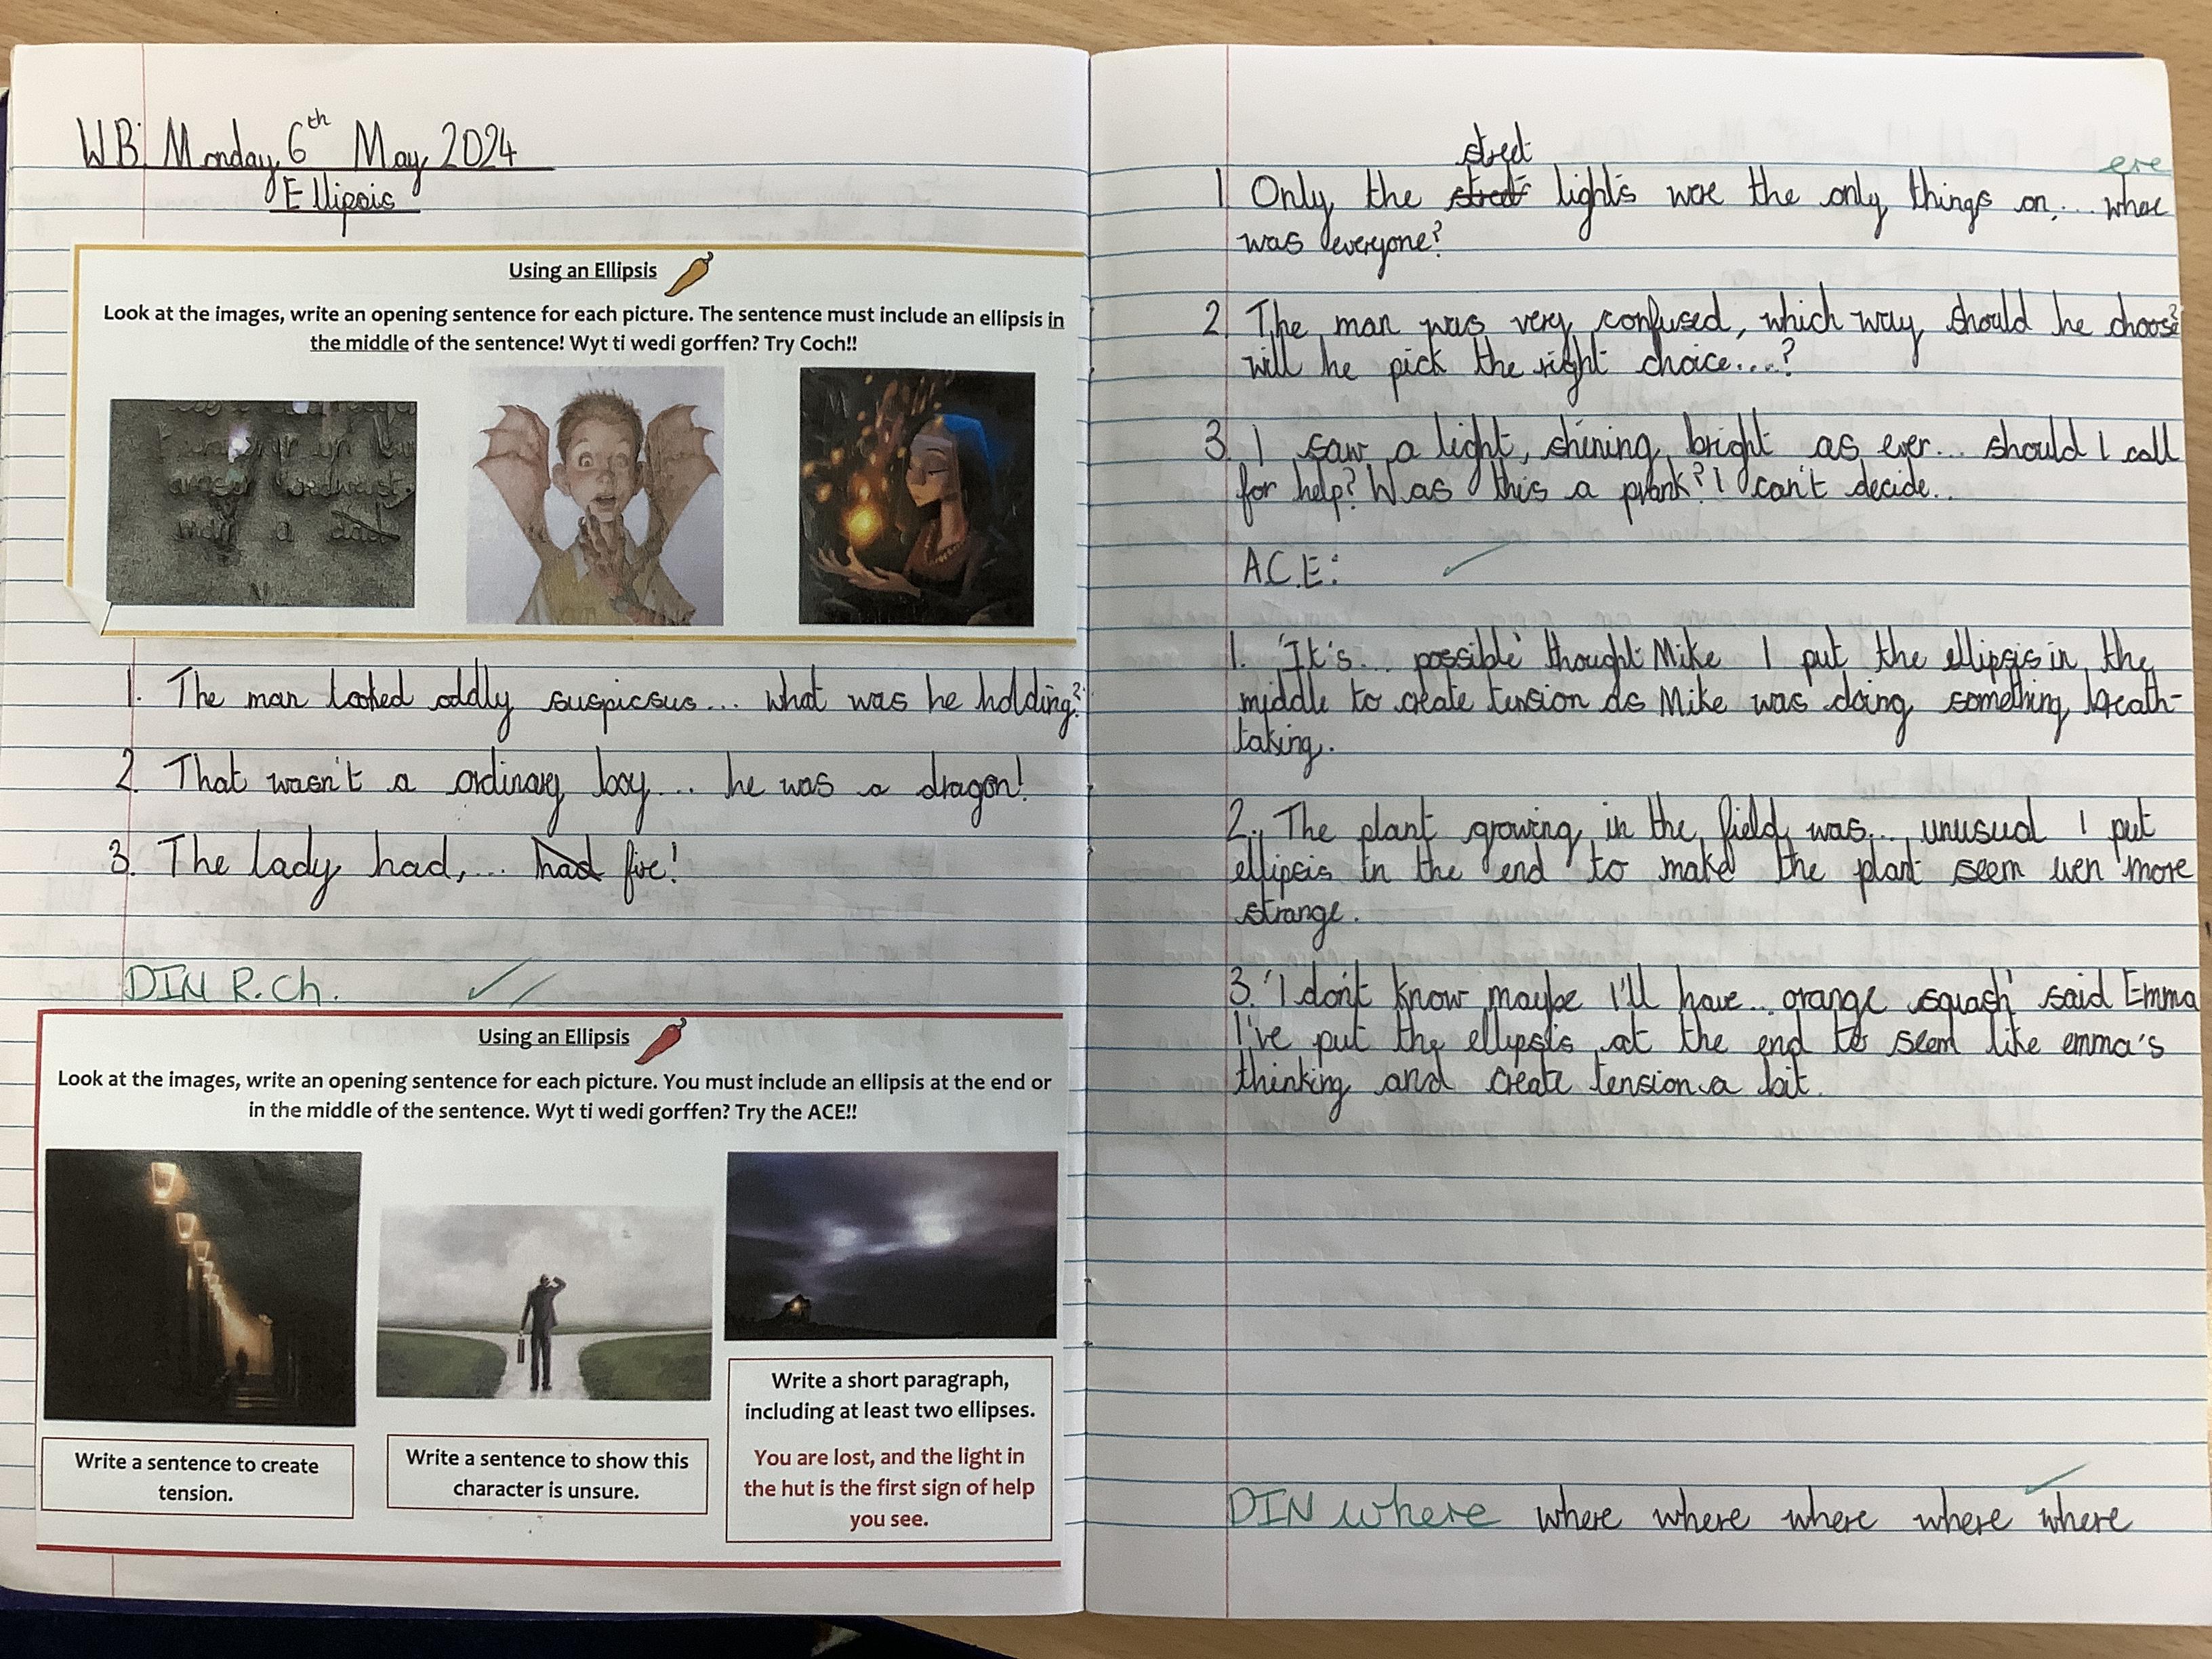 WB: Monday 6th May 2024
Ellipsis
Using an Ellipsis
Look at the images, write an opening sentence for each picture. The sentence must include an ellipsis in
the middle of the sentence! Wyt ti wedi gorffen? Try Coch!!
1. The man looked oddly suspicsus... what was he holding?
2. That wasn't a ordinary boy... he was a dragon!
3. The lady had,... had fire!
DIN R.Ch.
Using an Ellipsis
Look at the images, write an opening sentence for each picture. You must include an ellipsis at the end or
in the middle of the sentence. Wyt ti wedi gorffen? Try the ACE!!
Write a sentence to create
tension.
Write a sentence to show this
character is unsure.
Write a short paragraph,
including at least two ellipses.
You are lost, and the light in
the hut is the first sign of help
you see.
street
ere
1 Only the street lights were the only things on... whee
was everyone?
2. The man was very confused, which way should he choose?
will he pick the right choice....?
3. I saw a light, shining bright as ever... should I call
for help? Was this a prank? I can't decide..
A.C.E:
1. 'It's... possible' thought Mike I put the ellipsis in the
middle to create tension as Mike was doing something breath-
taking.
2. The plant growing in the field was... unusual I put
ellipsis in the end to make the plant seem even more
strange.
3. 'I don't know maybe I'll have... orange squash' said Emma
I've put the ellipsis at the end to seem like emma's
thinking and create tension a bit.
DIN where where where where where where